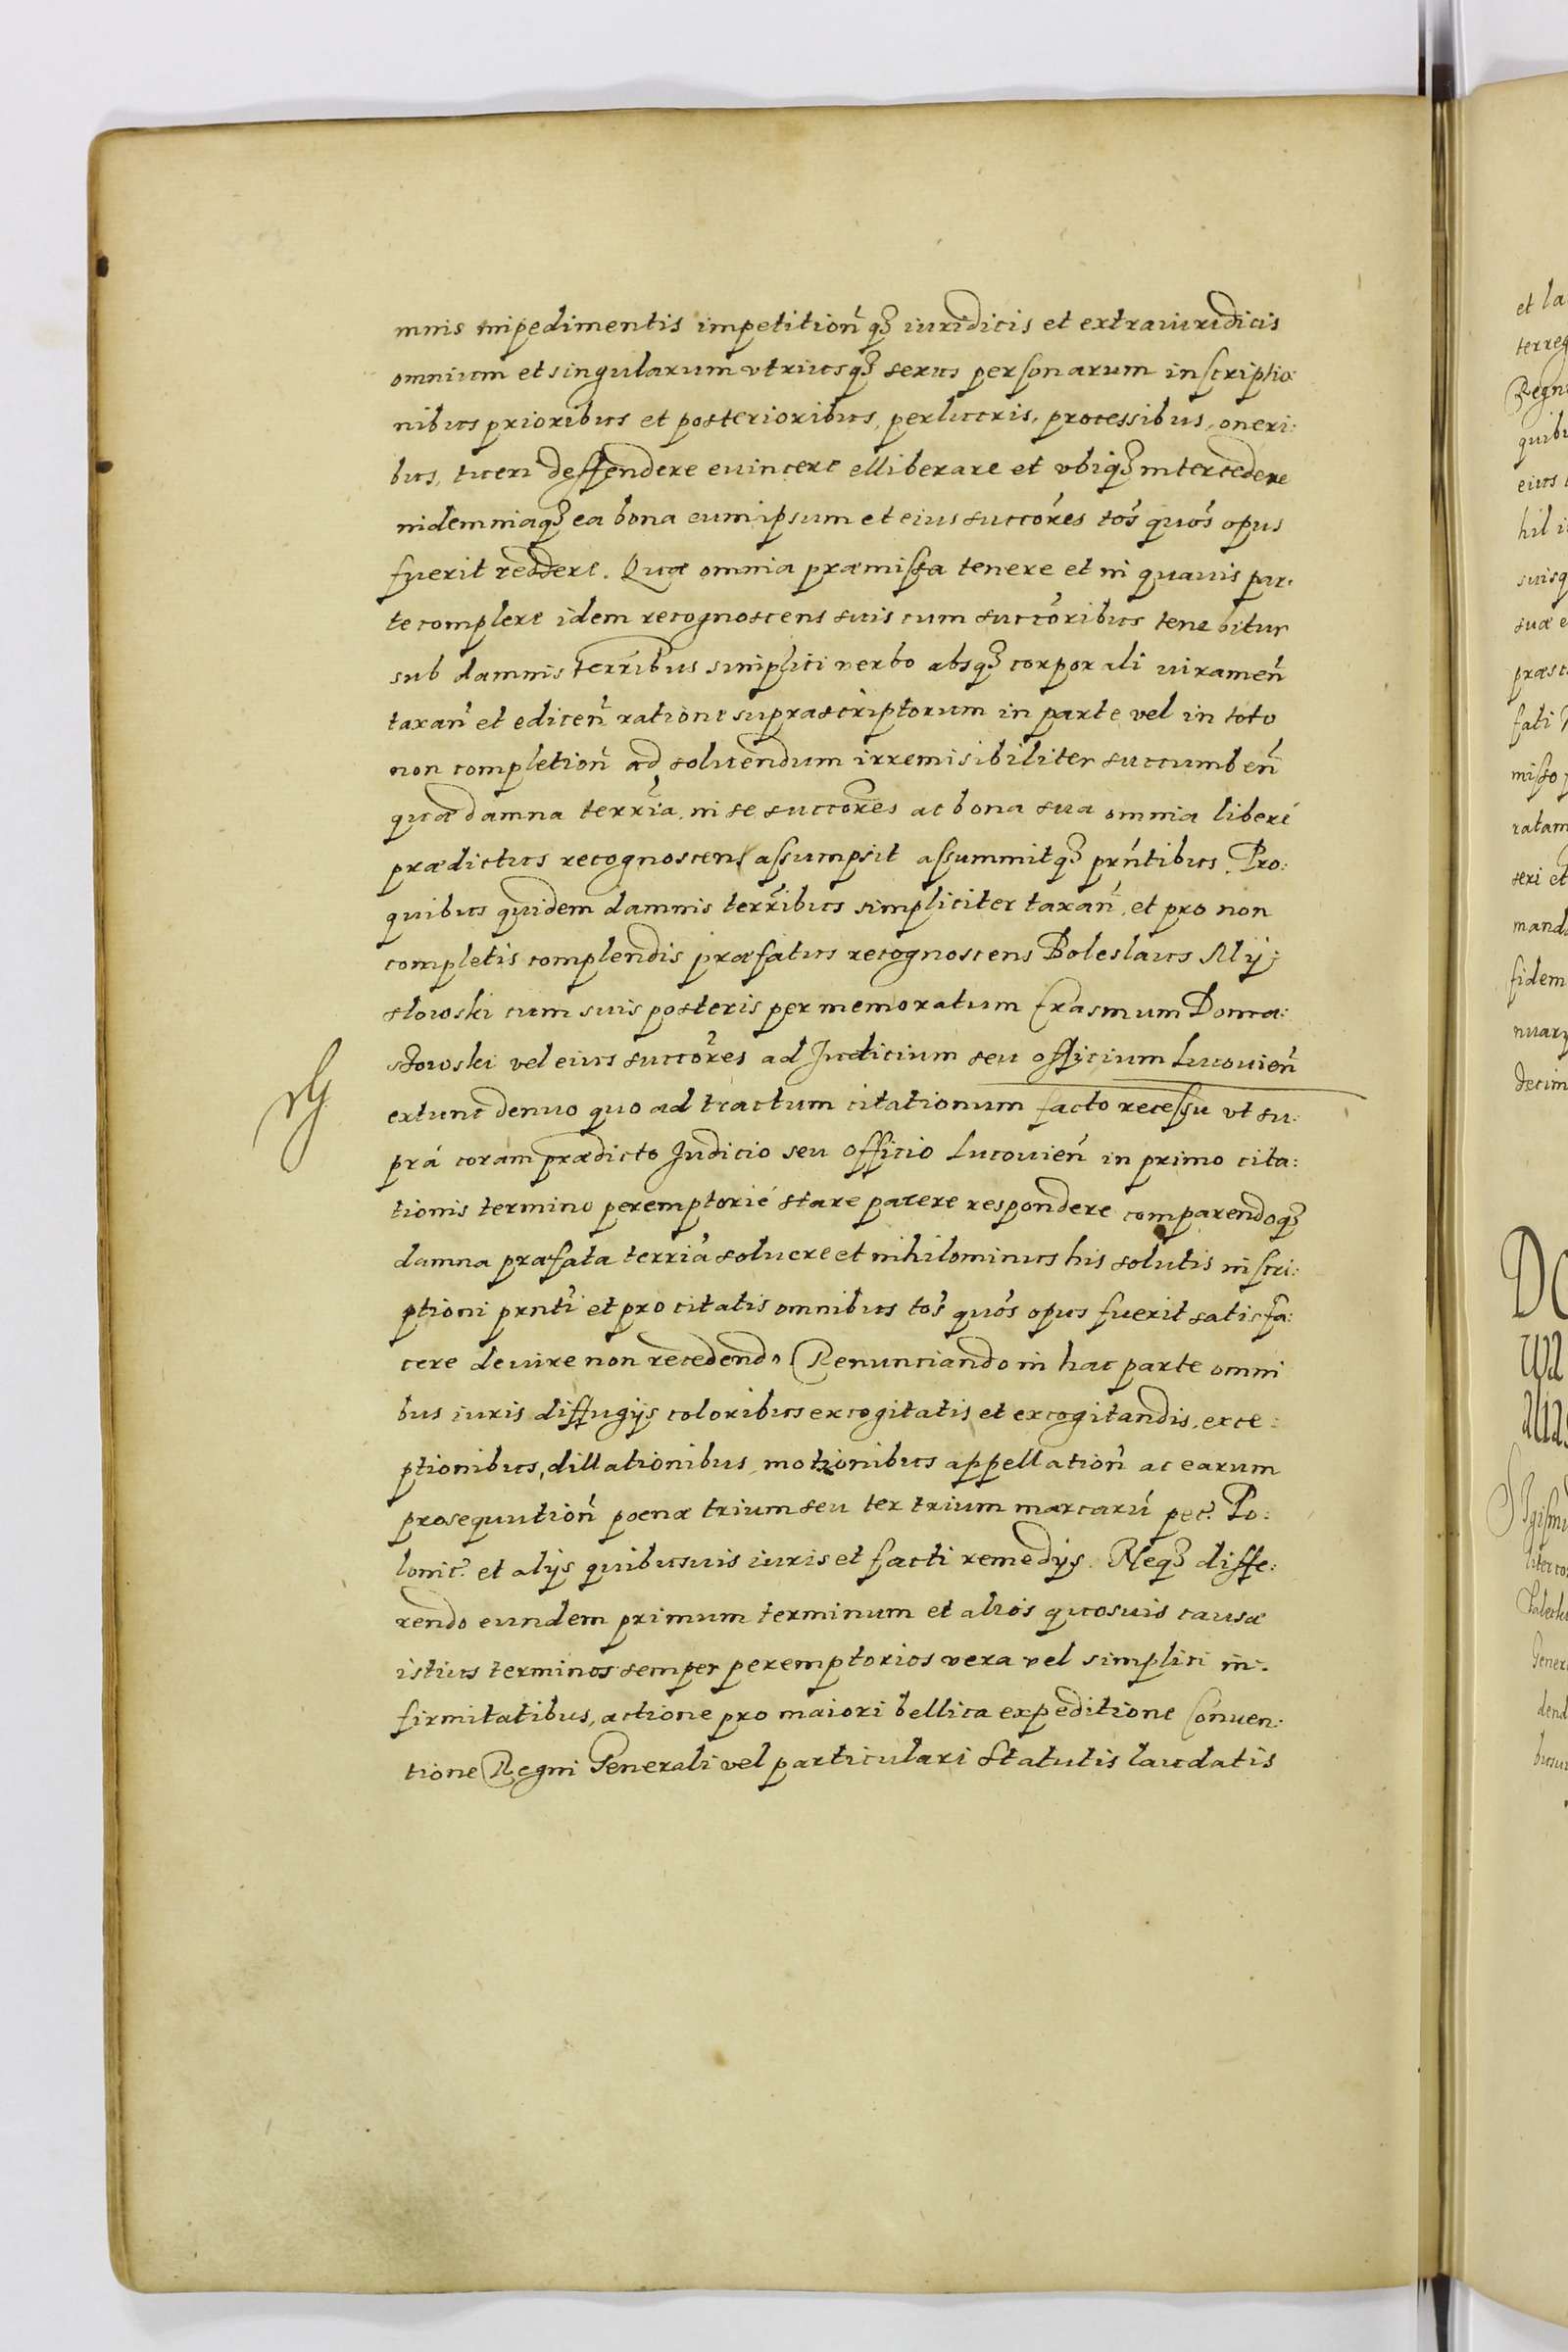 mnis impedimentis impetition̄ qꝫ iuridicis et extraiuridicis
omnium et singularum vtriusqꝫ sexus personarum inscriptio:
nibus prioribus et posterioribus, perlucris, processibus, oneri:
bus, tueri deffendere euincere elliberare et vbiqꝫ intercedere
indemniaqꝫ ea bona eum ipsum et eius succōres tōs quōs opus
fuerit reddere. Quæ omnia præmissa tenere et in quauis par:
te complere idem recognoscens suis cum succōribus tenebitur
sub damnis terrībus simplici verbo absqꝫ corporali iuramen̄
taxan̄ et edicen̄ ratione suprascriptorum in parte vel in toto
non completion̄ ad soluendum irremisibiliter succumben̄
quæ damna terrīa in se succōres ac bona sua omnia liberé
prædictus recognoscens assumpsit assummitqꝫ prn̄tibus. Pro:
quibus quidem damnis terrībus simpliciter taxan̄, et pro non
completis complendis præfatus recognoscens Boleslaus Mij:
slowski cum suis posteris per memoratum Erasmum Doma:
szowski vel eius succōres ad Judicium seu officium Lucouien̄
extunc denuo quo ad tractum citationum facto recessu vt su:
prá coram prædicto Judicio seu Officio Lucouien̄ in primo cita:
tionis termino peremptorié stare parere respondere comparendoqꝫ
damna præfata terrīa soluere et nihilominus his solutis inscri:
ptioni prn̄ti et pro citatis omnibus tōs quōs opus fuerit satisfa:
cere deuire non recedendo Renunciando in hac parte omni
bus iuris diffugijs coloribus excogitatis et excogitandis, exce:
ptionibus, dillationibus, motionibus appellation̄ ac earum
prosequution̄ poenæ trium seu ter trium marcarū pec. Po:
lonic. et alijs quibusuis iuris et facti remedijs. Neqꝫ diffe:
rendo eundem primum terminum et alios quosuis causæ
istius terminos semper peremptorios vera vel simplici in:
firmitatibus, actione pro maiori bellica expeditione Conuen:
tione Regni Generali vel particulari Statutis laudatis